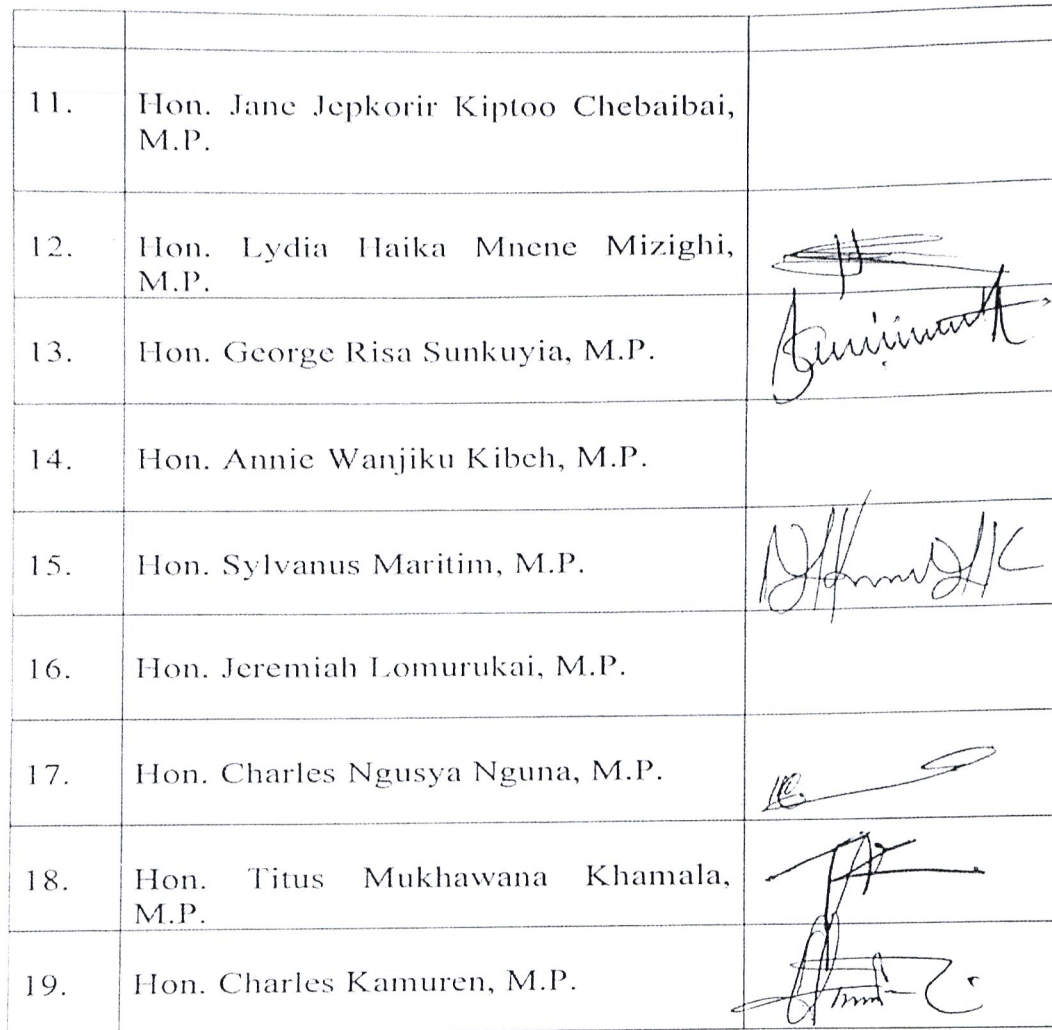 11. Hon. Jane Jepkorir Kiptoo Chebaibai,
M.P.
12. Hon. Lydia Haika Mnene Mizighi,
M.P.
13. Hon. George Risa Sunkuyia, M.P.
14. Hon. Annie Wanjiku Kibeh, M.P.
15. Hon. Sylvanus Maritim, M.P.
16. Hon. Jeremiah Lomurukai, M.P.
17. Hon. Charles Ngusya Nguna, M.P.
18. Hon. Titus Mukhawana Khamala,
M.P.
19. Hon. Charles Kamuren, M.P.